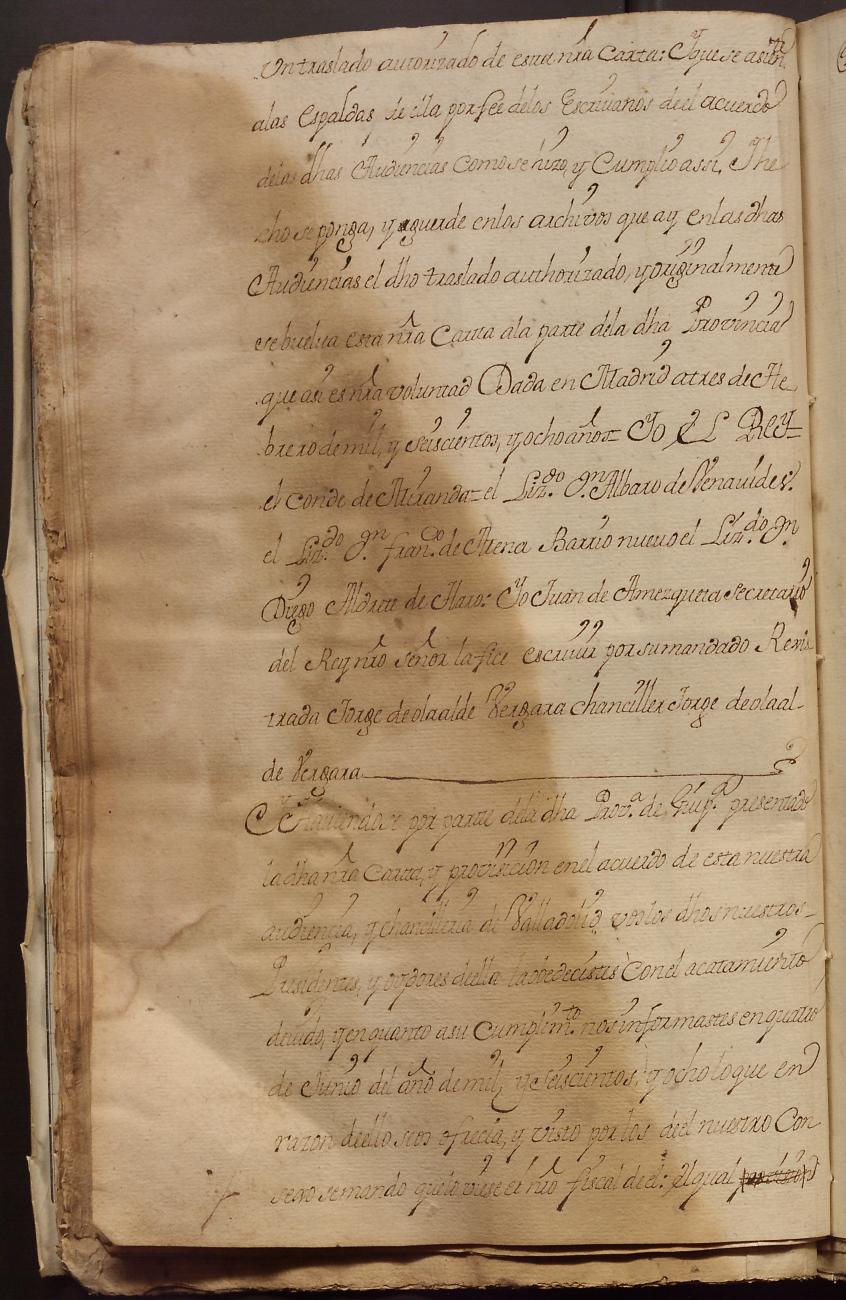 Un traslado autorizado de esta nra Carta: Y que se asiente
alas Espaldas de ella por fee delos Escriuanos de el acuerdo
delas dhas Audiencias como se hizo, y Cumplio assi, Y he
cho se ponga, y guarde en los archivos que ay en las dhas
Audiencias el dho traslado authorizado, y originalmente
se buelua esta nra Carta ala parte dela dha Provincia
que asi es nra voluntad Dada en Madrid a tres de He
brero de mil, y seiscientos, y ocho años= Yo EL REY=
el conde de Miranda= el Liz.do Dn. Albaro de Venauides.
el Liz.do Dn. Fran.co de Mena Barrio nueuo el Liz.do Dn.
Diego Aldrete de Haro: Yo Juan de Amezqueta Secretario
del Rey nro señor la fice escriuir por su mandado Regis
trada Jorge de olaalde Vergara chanciller Jorge de olaal-
de Vergara
Y Hauiendose por parte dela dha Prov.a de Guip.a presentado
la dha nra Carta, y provision en el acuerdo de esta nuestra
audiencia, y chancilleria de Valladolid, vos los dhos nuestros
Presidentes, y oydores de ella la obedecistes con el acatamiento
deuido, y en quanto a su Cumplim.to nos informastes en quatro
de Junio del año de mil, y seiscientos, y ocho lo que en
razon de ello se os ofrecia, y visto por los de el nuestro Con
sexo se mando que lo viese el nro fiscal de el: El qual